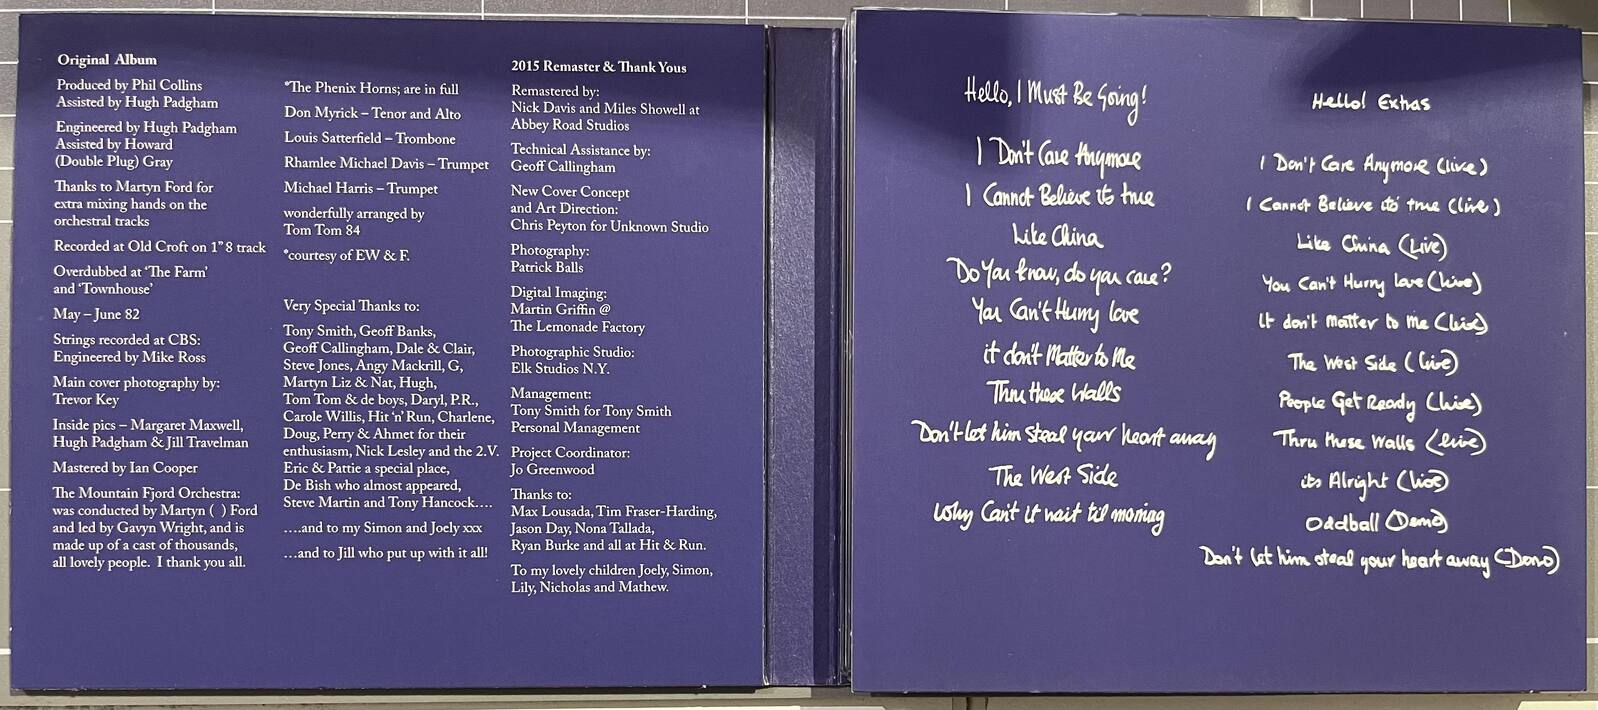 Original Album
Produced by Phil Collins
Assisted by Hugh Padgham
Engineered by Hugh Padgham
Assisted by Howard
(Double Plug) Gray
Thanks to Martyn Ford for
extra mixing hands on the
orchestral tracks
Recorded at Old Croft on 1" 8 track
Overdubbed at 'The Farm'
and 'Townhouse'
May – June 82
Strings recorded at CBS:
Engineered by Mike Ross
Main cover photography by:
Trevor Key
Inside pics – Margaret Maxwell,
Hugh Padgham & Jill Travelman
Mastered by Ian Cooper
The Mountain Fjord Orchestra:
was conducted by Martyn ( ) Ford
and led by Gavyn Wright, and is
made up of a cast of thousands,
all lovely people. I thank you all.
*The Phenix Horns; are in full
Don Myrick – Tenor and Alto
Louis Satterfield – Trombone
Rhamlee Michael Davis – Trumpet
Michael Harris – Trumpet
wonderfully arranged by
Tom Tom 84
*courtesy of EW & F.
Very Special Thanks to:
Tony Smith, Geoff Banks,
Geoff Callingham, Dale & Clair,
Steve Jones, Angy Mackrill, G,
Martyn Liz & Nat, Hugh,
Tom Tom & de boys, Daryl, P.R.,
Carole Willis, Hit 'n' Run, Charlene,
Doug, Perry & Ahmet for their
enthusiasm, Nick Lesley and the 2.V.
Eric & Pattie a special place,
De Bish who almost appeared,
Steve Martin and Tony Hancock....
....and to my Simon and Joely xxx
...and to Jill who put up with it all!
2015 Remaster & Thank Yous
Remastered by:
Nick Davis and Miles Showell at
Abbey Road Studios
Technical Assistance by:
Geoff Callingham
New Cover Concept
and Art Direction:
Chris Peyton for Unknown Studio
Photography:
Patrick Balls
Digital Imaging:
Martin Griffin @
The Lemonade Factory
Photographic Studio:
Elk Studios N.Y.
Management:
Tony Smith for Tony Smith
Personal Management
Project Coordinator:
Jo Greenwood
Thanks to:
Max Lousada, Tim Fraser-Harding,
Jason Day, Nona Tallada,
Ryan Burke and all at Hit & Run.
To my lovely children Joely, Simon,
Lily, Nicholas and Mathew.
Hello, I Must Be Going!
I Don't Care Anymore
I Cannot Believe its true
Like China
Do You know, do you care?
You Can't Hurry love
it don't Matter to Me
Thru these Walls
Don't let him steal your heart away
The West Side
Why Can't it wait til morning
Hello! Extras
I Don't Care Anymore (live)
I Cannot Believe its true (live)
Like China (Live)
You Can't Hurry love (live)
It don't Matter to Me (live)
The West Side (live)
People Get Ready (live)
Thru these Walls (live)
its Alright (live)
Oddball (Demo)
Don't let him steal your heart away (Demo)